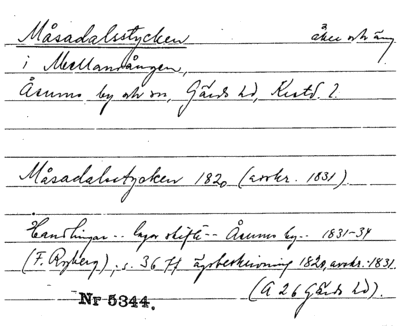 Måsadalsstycken åker och äng
i Mellanvången,
Åsums by och sn, Gärds hd, Krstd. l.
Måsadalsstycken 1820 (avskr. 1831)
Handlingar -- laga skifte -- Åsums by -- 1831-34
(F. Ryberg); s. 36 ff ägobeskrivning 1820, avskr. 1831.
(A 26 Gärds hd).
Nr 5344.